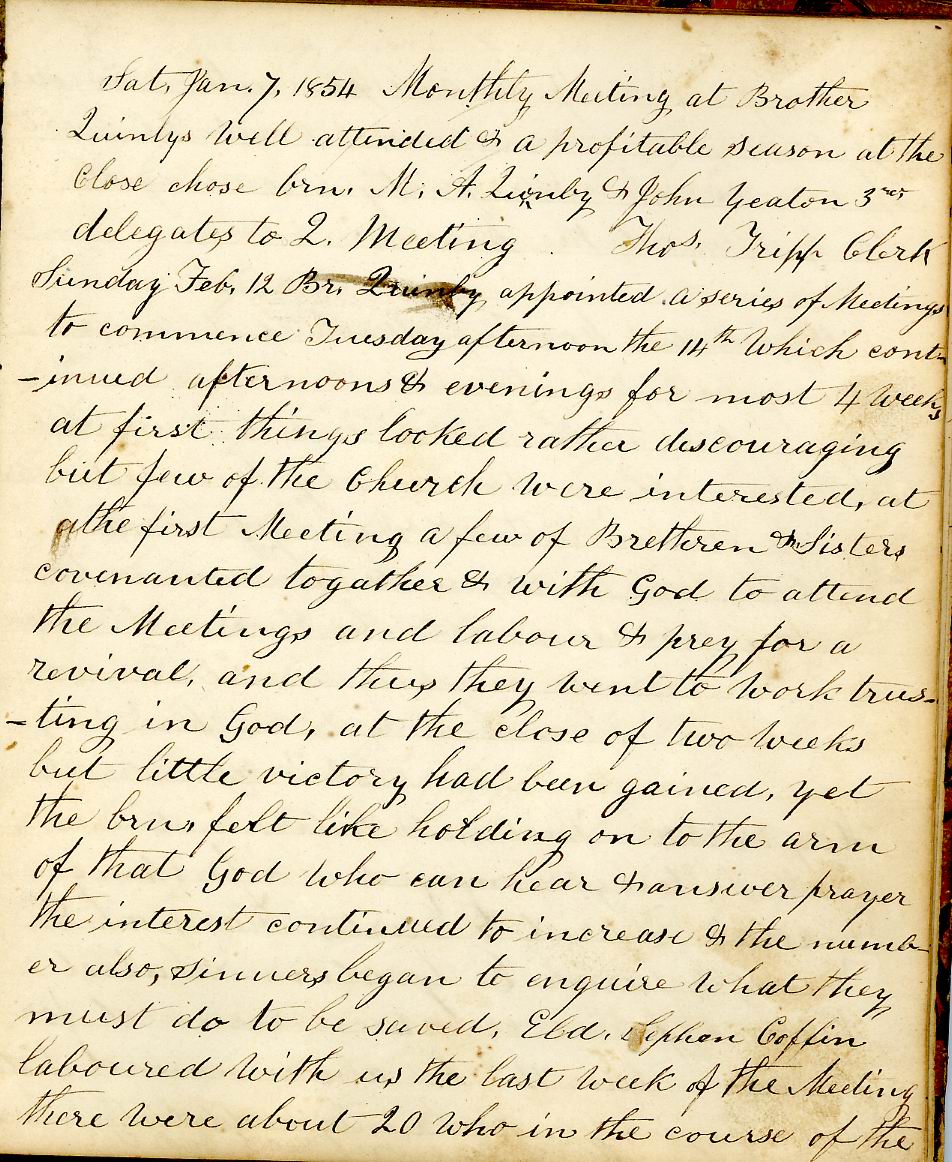 Sat, Jan. 7, 1854 Monthly Meeting at Brother
Quinbys well attended & a profitable season at the
close chose brn. M. A. Quinby & John Yeaton 3rd
delegates to Q. Meeting Thos. Tripp Clerk
Sunday Feb. 12 Br. Quinby appointed a series of Meetings
to commence Tuesday afternoon the 14th which cont-
-inued afternoons & evenings for most 4 weeks
at first things looked rather discouraging
but few of the Church were interested, at
the first Meeting a few of Brethren & Sisters
covenanted togather & with God to attend
the Meetings and labour & prey for a
revival, and thus they went to work trus-
-ting in God, at the close of two weeks
but little victory had been gained, yet
the brn, felt like holding on to the arm
of that God who can hear & answer prayer
the interest continued to increase & the numb-
er also, sinners began to enquire what they
must do to be saved, Eld. Stephen Coffin
laboured with us the last week of the Meeting
there were about 20 who in the course of the